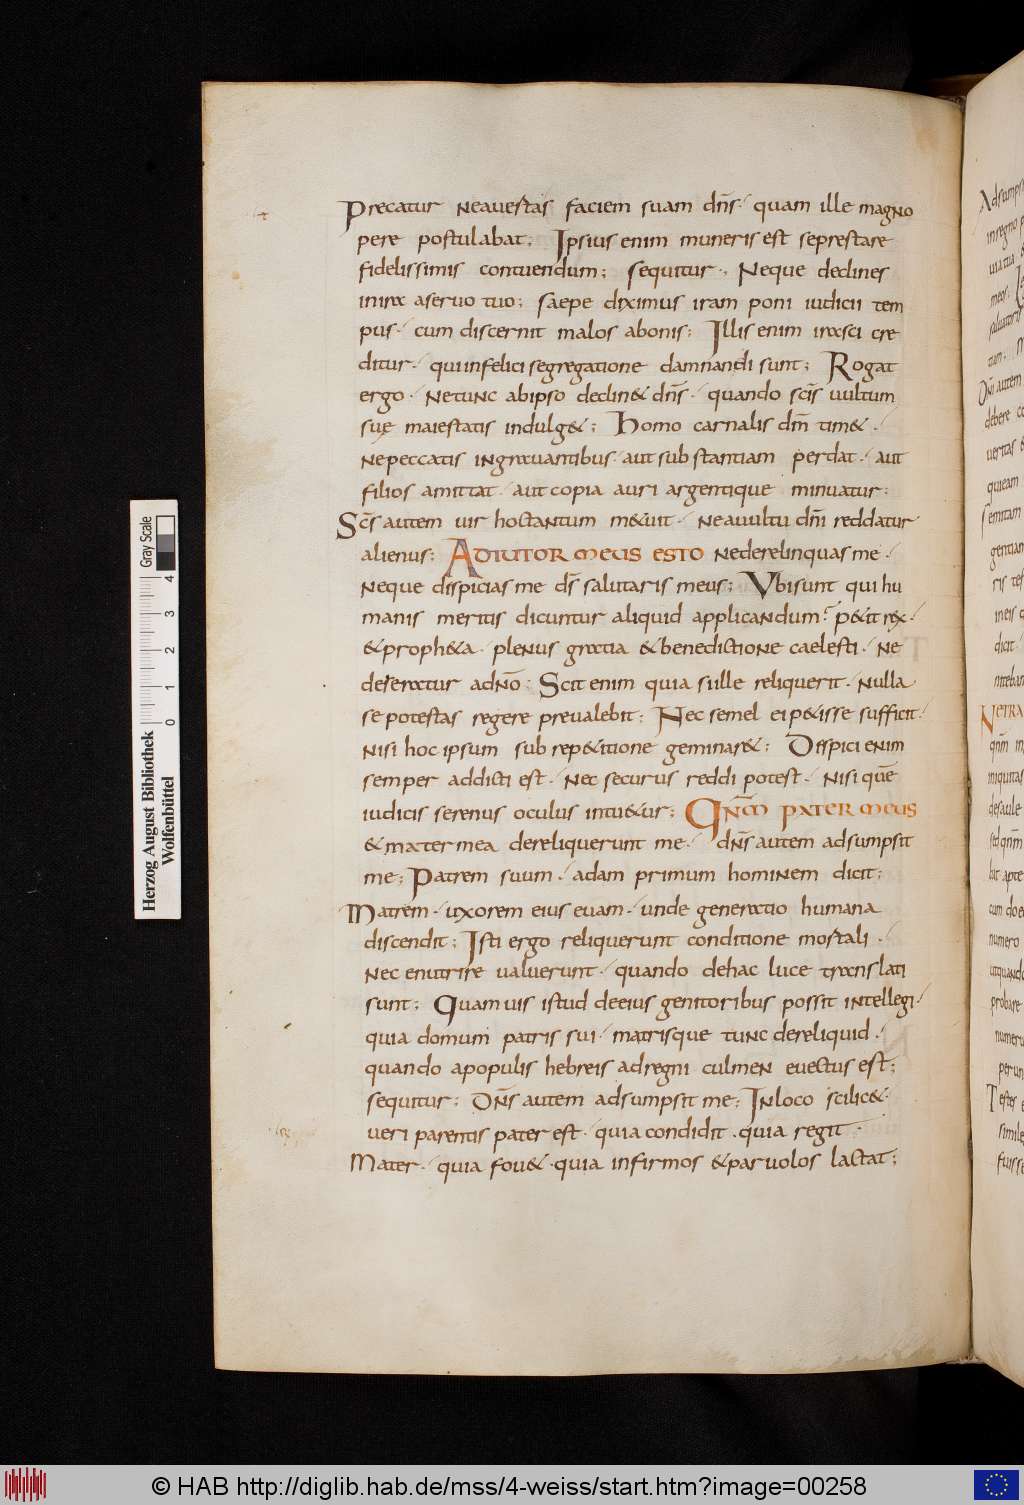 Precatur ne auertas faciem suam dn̄s · quam ille magno
pere postulabat ; Ipsius enim muneris est se prestare
fidelissimis contuendum ; sequitur · Neque declines
in ira a seruo tuo ; saepe diximus iram poni iudicii tem
pus · cum discernit malos a bonis ; Illis enim irasci cre
ditur · qui infelici segregatione damnandi sunt ; Rogat
ergo · Ne tunc ab ipso declin& dn̄s · quando sc̄is uultum
suę maiestatis indulg& ; Homo carnalis dm̄ tim& ·
ne peccatis ingrauantibus · aut substantiam perdat · aut
filios amittat · aut copia auri argentique minuatur ;
Sc̄s autem uir hoc tantum m&uit · ne a uultu dn̄i reddatur
alienus ; ADIUTOR MEUS ESTO ne derelinquas me ·
Neque dispicias me ds̄ salutaris meus ; Ubi sunt qui hu
manis meritis dicuntur aliquid applicandum ? p&it rex ·
& proph&a · plenus gratia & benedictione caelesti · ne
deseratur a dn̄o ; Scit enim quia si ille reliquerit · nulla
se potestas regere preualebit ; Nec semel ei p&isse sufficit ·
nisi hoc ipsum sub rep&itione geminar& ; Dispici enim
semper addicti est · nec securus reddi potest · nisi quē
iudicis serenus oculus intu&ur ; QN̄M PATER MEUS
& mater mea dereliquerunt me · dn̄s autem adsumpsit
me ; Patrem suum · adam primum hominem dicit ;
Matrem · uxorem eius euam · unde generatio humana
discendit ; Isti ergo reliquerunt conditione mortali ·
nec enutrire ualuerunt · quando de hac luce translati
sunt ; Quamuis istud de eius genitoribus possit intellegi ·
quia domum patris sui · matrisque tunc dereliquid ·
quando a populis hebreis ad regni culmen euectus est ;
sequitur ; Dn̄s autem adsumpsit me ; In loco scilic& ·
ueri parentis pater est · quia condidit · quia regit ·
Mater · quia fou& · quia infirmos & paruolos lactat ;
Gray Scale
4 3 2 1 0
Herzog August Bibliothek
Wolfenbüttel
© HAB http://diglib.hab.de/mss/4-weiss/start.htm?image=00258